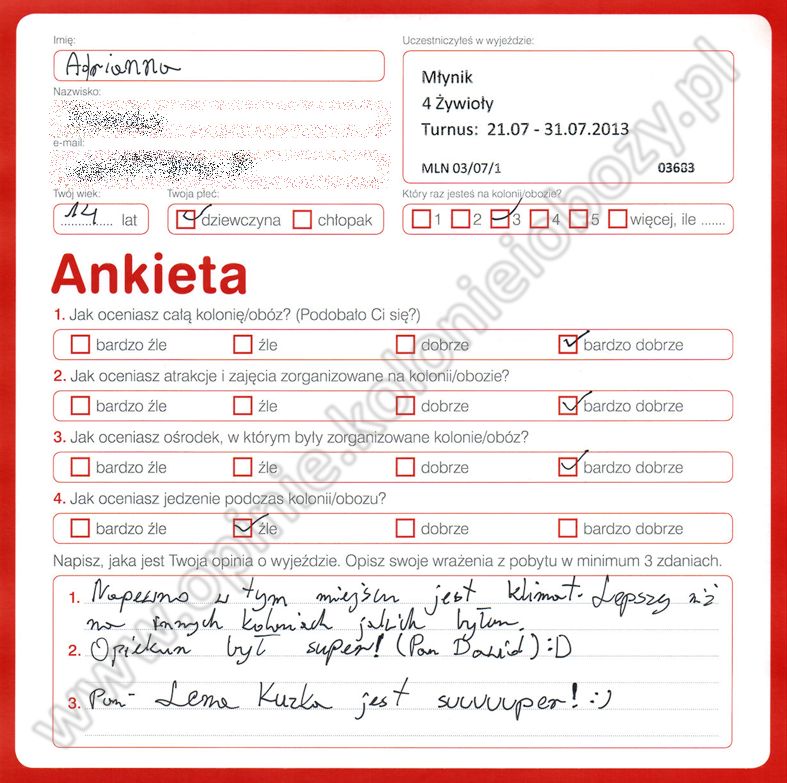 Imię:
Adrianna
Uczestniczyłeś w wyjeździe:
Młynik
4 Żywioły
Turnus: 21.07 - 31.07.2013
MLN 03/07/1 03683
Nazwisko:
e-mail:
Twój wiek:
14 lat
Twoja płeć:
dziewczyna chłopak
Który raz jesteś na kolonii/obozie?
1 2 3 4 5 więcej, ile .......
Ankieta
1. Jak oceniasz całą kolonię/obóz? (Podobało Ci się?)
bardzo źle źle dobrze bardzo dobrze
2. Jak oceniasz atrakcje i zajęcia zorganizowane na kolonii/obozie?
bardzo źle źle dobrze bardzo dobrze
3. Jak oceniasz ośrodek, w którym były zorganizowane kolonie/obóz?
bardzo źle źle dobrze bardzo dobrze
4. Jak oceniasz jedzenie podczas kolonii/obozu?
bardzo źle źle dobrze bardzo dobrze
Napisz, jaka jest Twoja opinia o wyjeździe. Opisz swoje wrażenia z pobytu w minimum 3 zdaniach.
1. Napewno w tym miejscu jest klimat. Lepszy niż
na innych koloniach jakich byłam.
2. Opiekun był super! (Pan Dawid) :D
3. Pan - Kuzka jest suuuuuper! :)
www.opinie.kolonieiobozy.pl